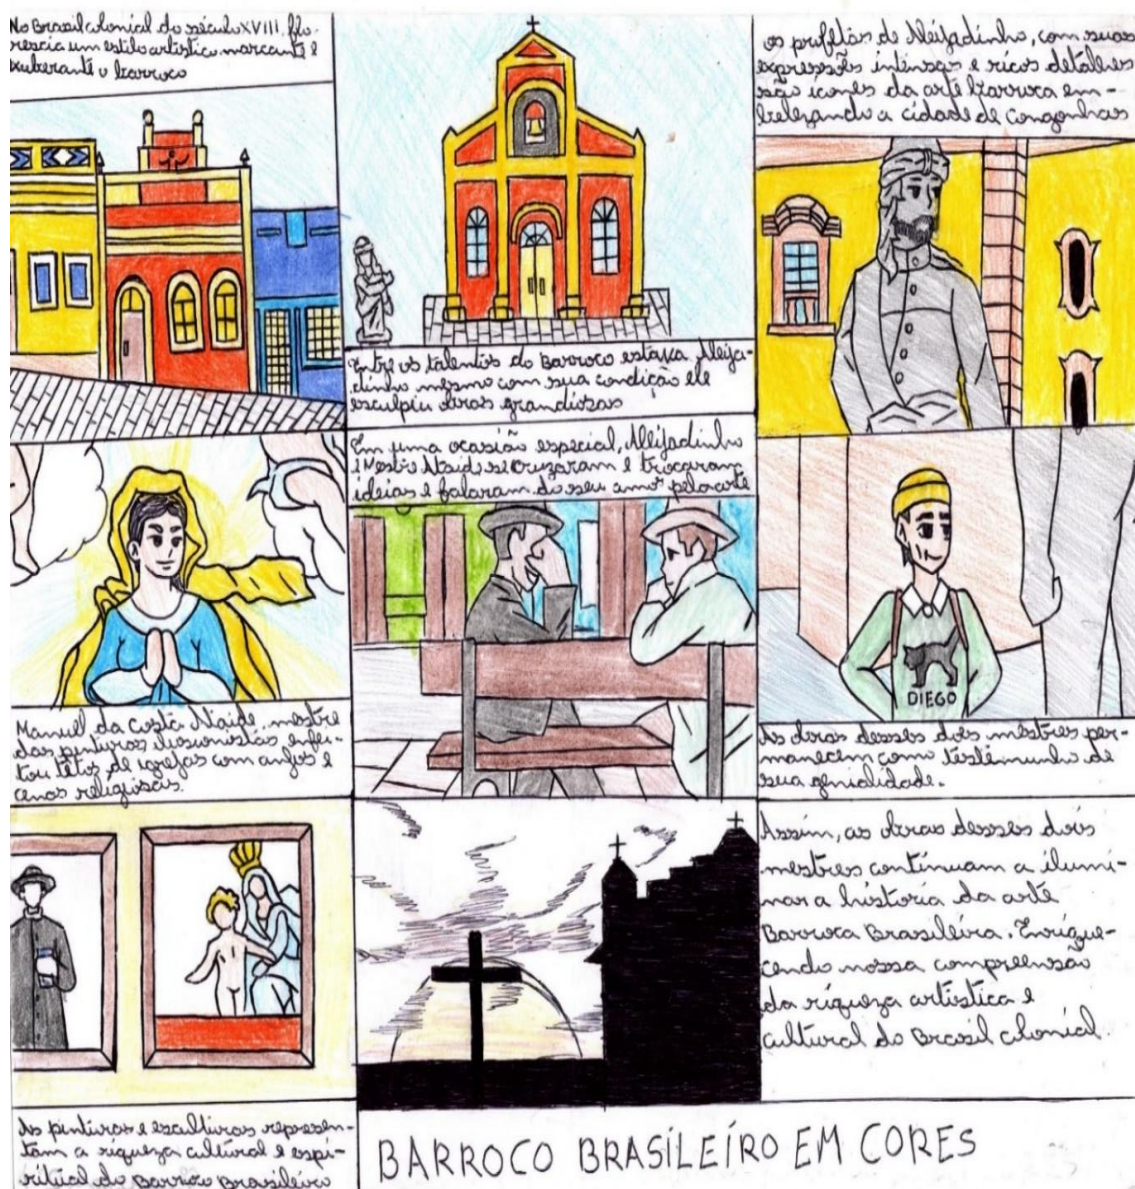 No Brasil colonial do século XVIII, flo-
rescia um estilo artístico marcante e
exuberante o barroco
Entre os talentos do Barroco estava Aleija-
dinho mesmo com sua condição ele
esculpiu obras grandiosas
os profetas de Aleijadinho, com suas
expressões intensas e ricos detalhes
são ícones da arte barroca em-
belezando a cidade de Congonhas
Manuel da Costa Ataide, mestre
das pinturas ilusionistas enfei-
tou tetos de igrejas com anjos e
cenas religiosas.
Em uma ocasião especial, Aleijadinho
e Mestre Ataide se cruzaram e trocaram
ideias e falaram do seu amor pela arte
DIEGO
As obras desses dois mestres per-
manecem como testemunho de
sua genialidade.
As pinturas e esculturas represen-
tam a riqueza cultural e espi-
ritual do Barroco Brasileiro
Assim, as obras desses dois
mestres continuam a ilumi-
nar a história da arte
Barroca Brasileira. Enrique-
cendo nossa compreensão
da riqueza artística e
cultural do Brasil colonial.
BARROCO BRASILEÍRO EM CORES